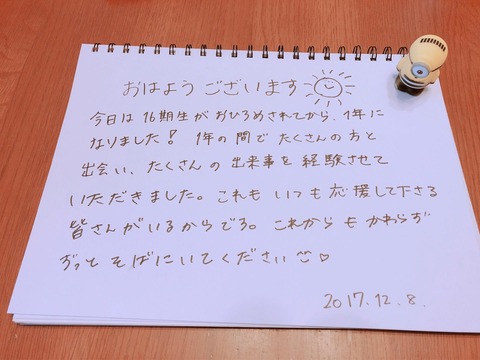 おはようございます
今日は16期生がおひろめされてから、1年に
なりました! 1年の間でたくさんの方と
出会い、たくさんの出来事を経験させて
いただきました。これもいつも応援して下さる
皆さんがいるからでる。これからもかわらず
ずっとそばにいてください
2017.12.8.